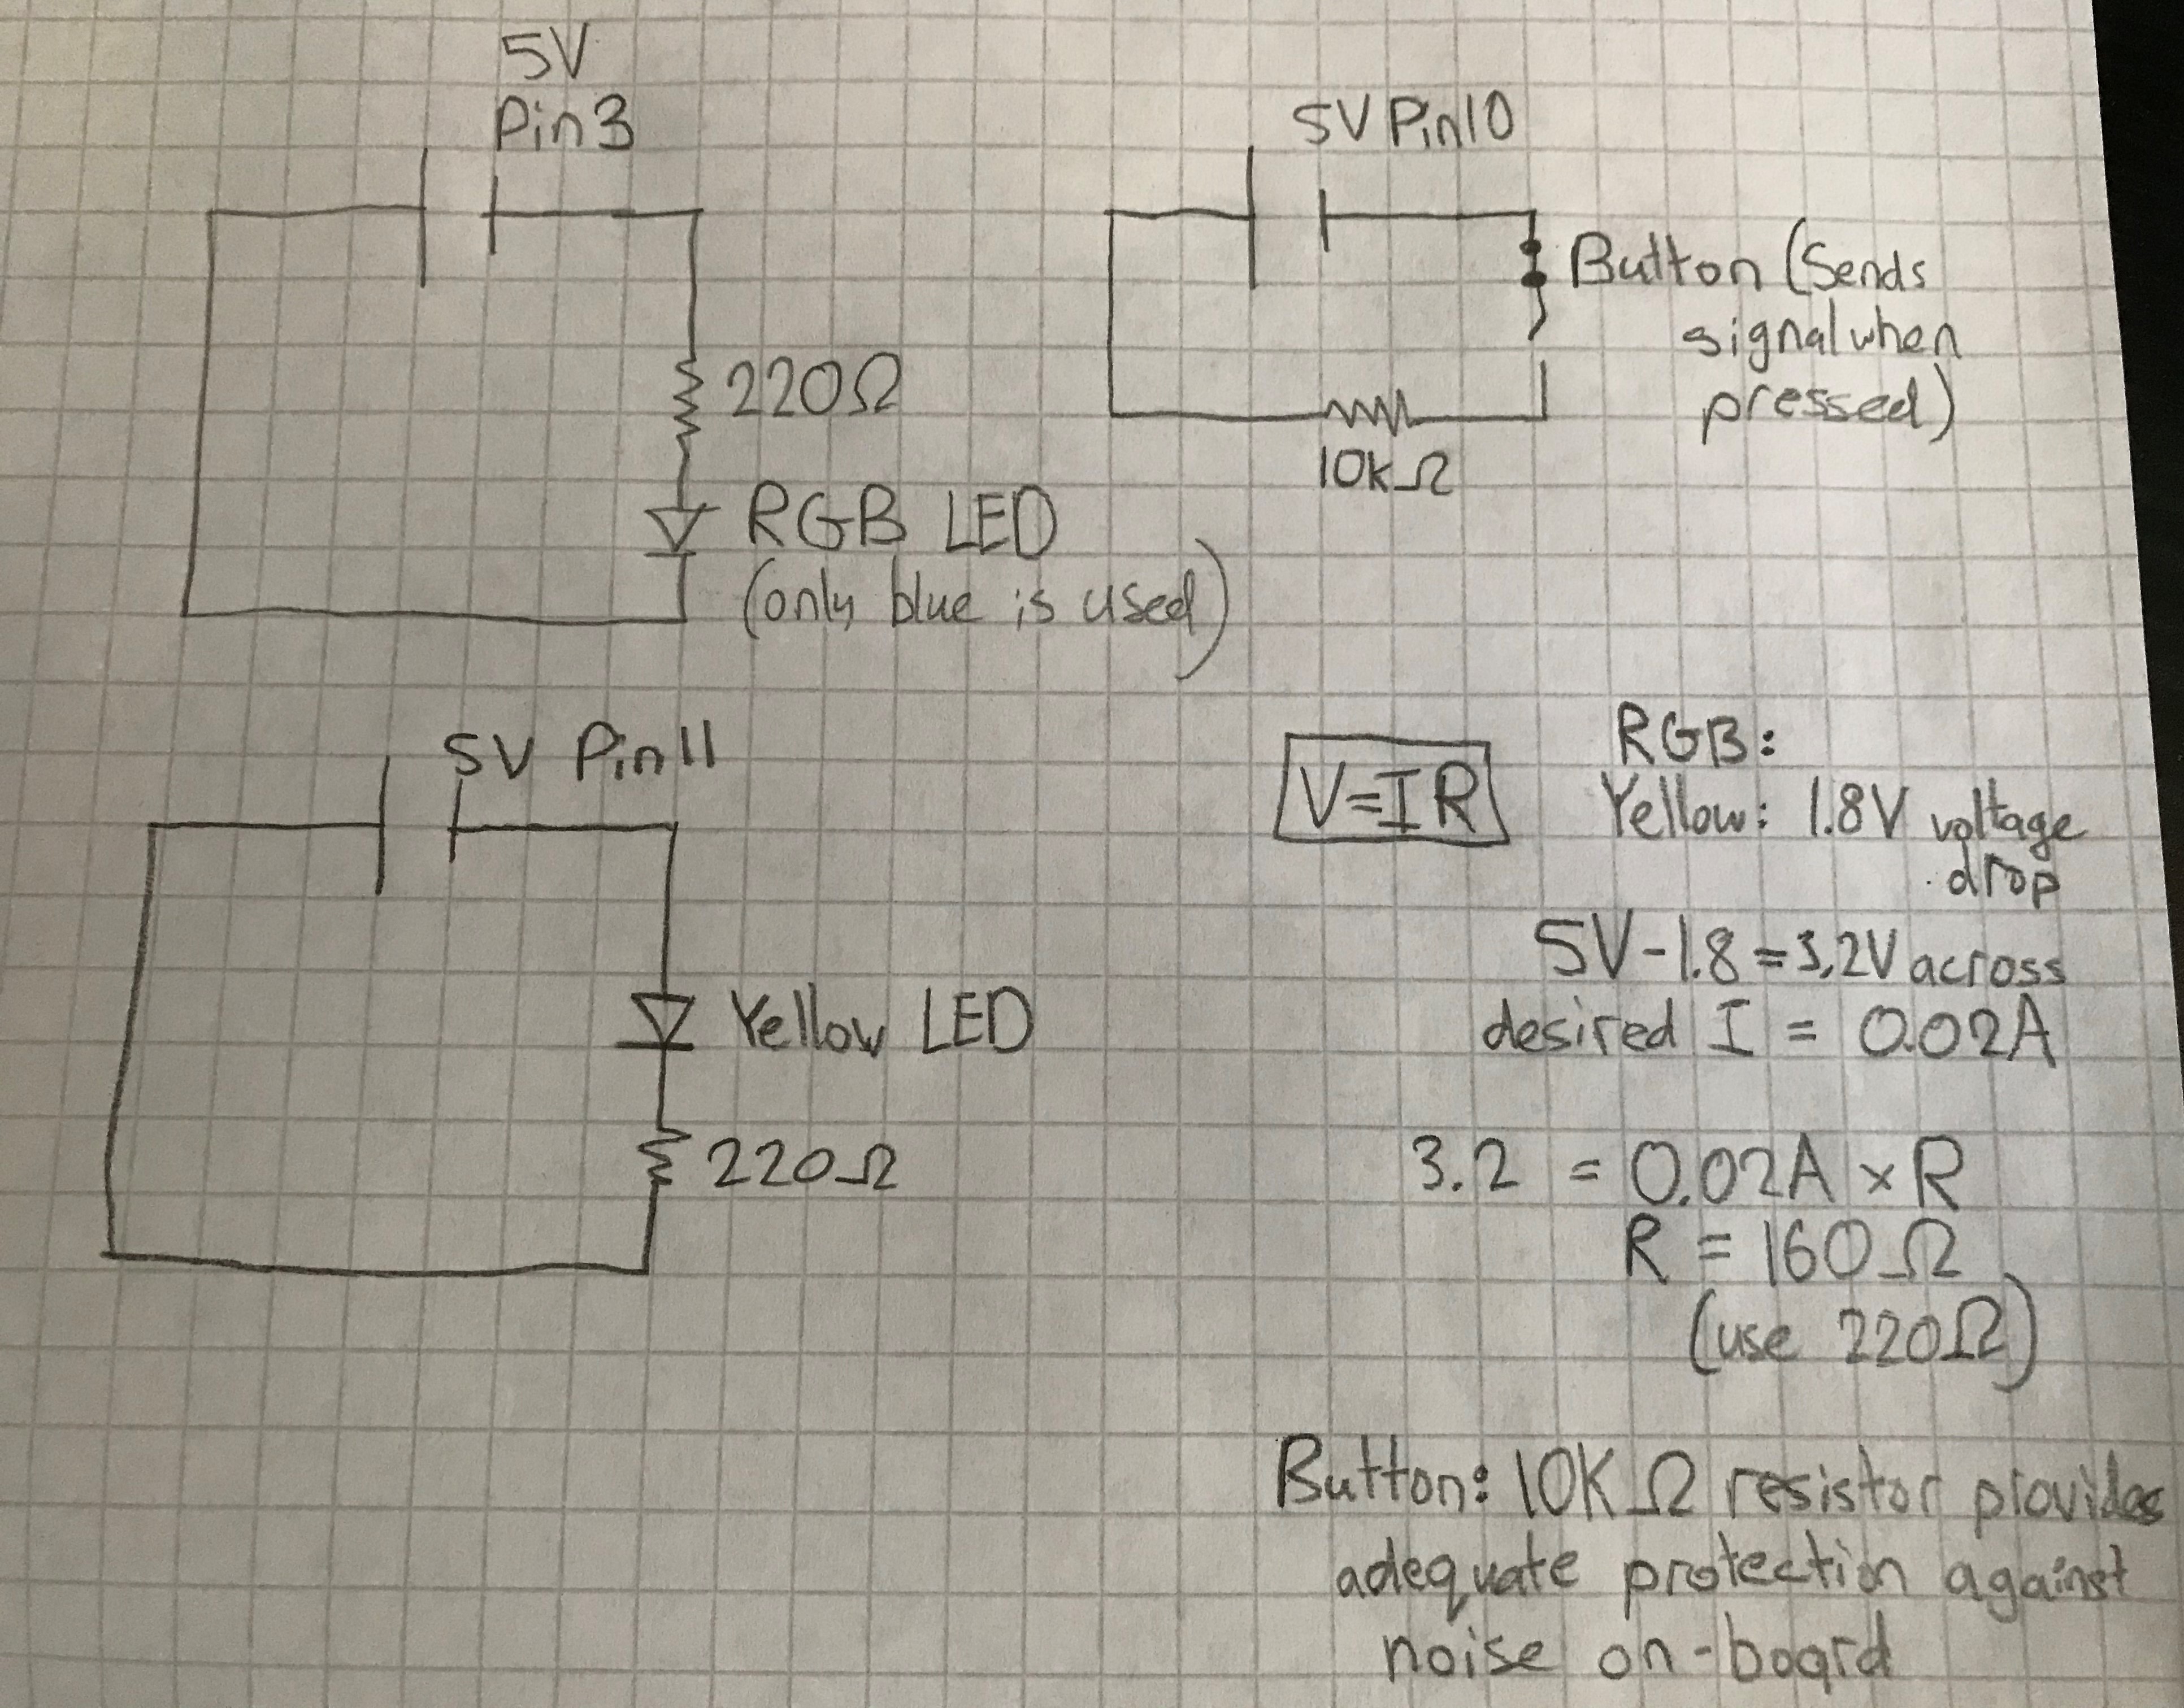 5V
Pin3
220Ω
RGB LED
(only blue is used)
5V Pin10
Button (Sends
signal when
pressed)
10kΩ
5V Pin11
Yellow LED
220Ω
V=IR
RGB:
Yellow: 1.8V voltage
drop
5V-1.8=3.2V across
desired I = 0.02A
3.2 = 0.02A × R
R = 160Ω
(use 220Ω)
Button: 10KΩ resistor provides
adequate protection against
noise on-board